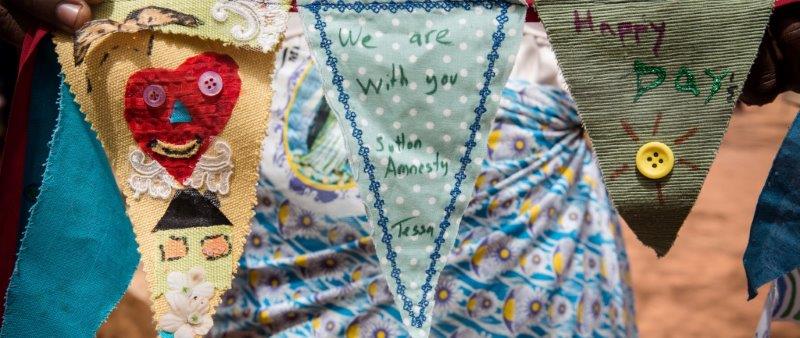 We are
With you
Sutton
Amnesty
Tessa
Happy
Day's